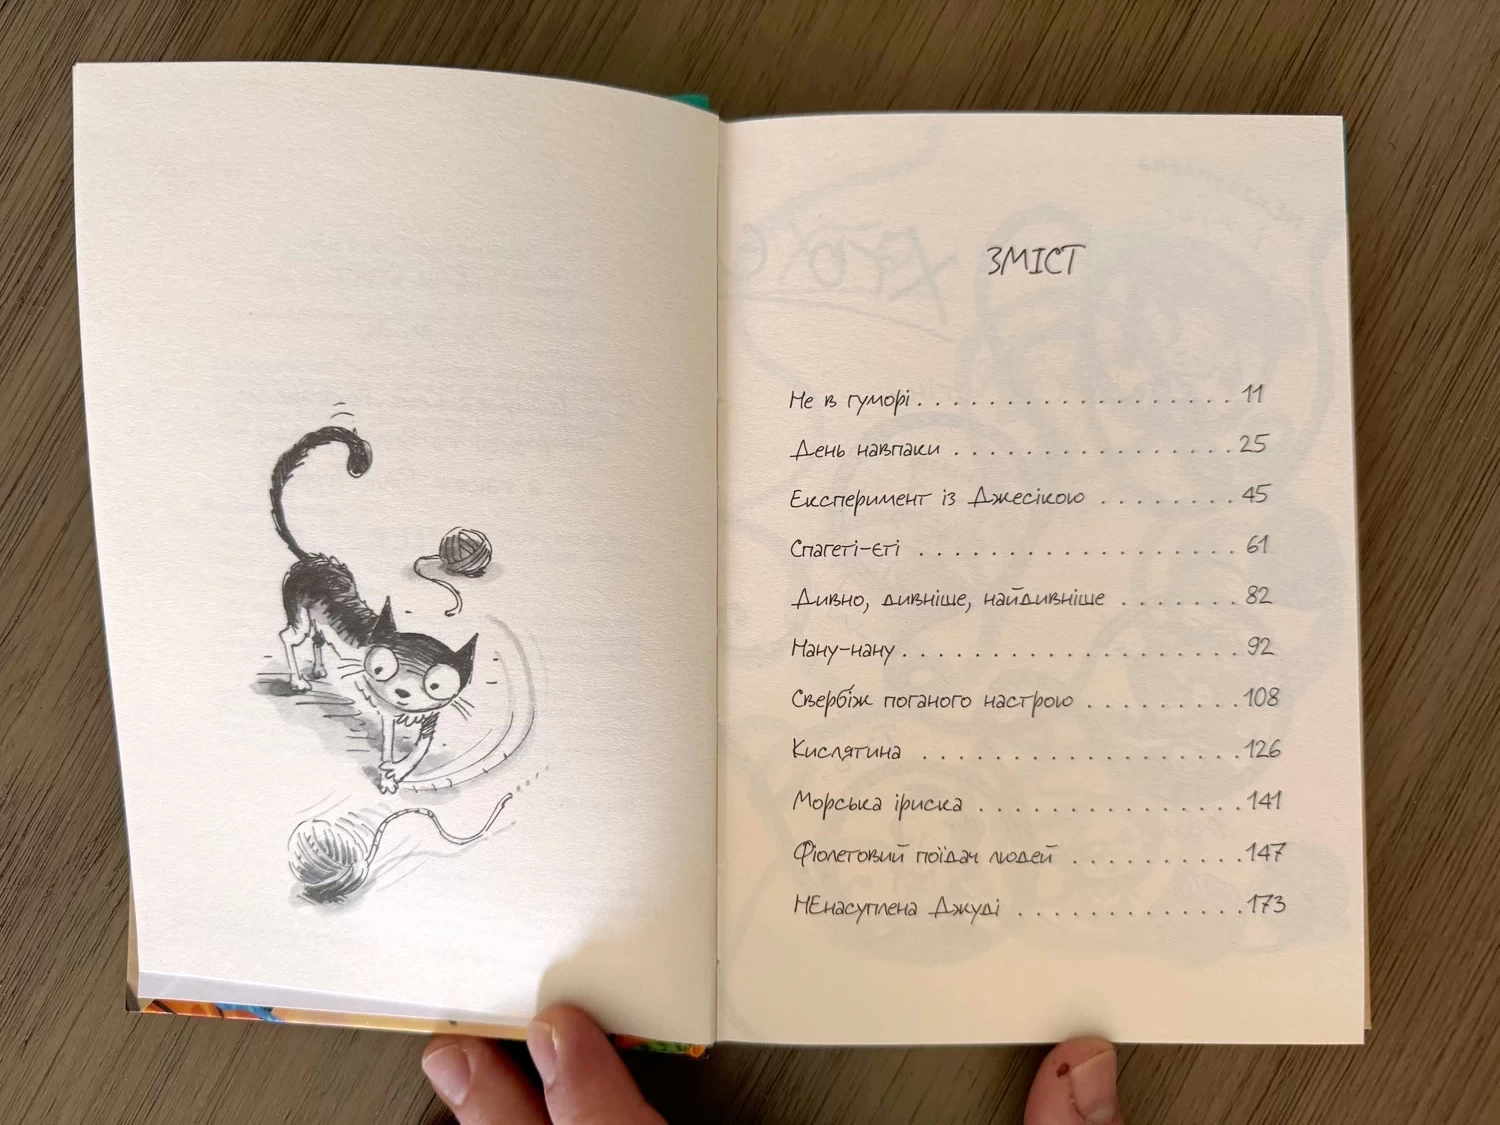 ЗМІСТ
Не в гуморі . . . . . . . . . . . . . . . . . . . 11
День навпаки . . . . . . . . . . . . . . . . . 25
Експеримент із Джесікою . . . . . . . . 45
Спагеті-єті . . . . . . . . . . . . . . . . . . . 61
Дивно, дивніше, найдивніше . . . . . . . 82
Нану-нану . . . . . . . . . . . . . . . . . . . . 92
Свербіж поганого настрою . . . . . . . . . 108
Кислятина . . . . . . . . . . . . . . . . . . . 126
Морська іриска . . . . . . . . . . . . . . . . 141
Фіолетовий поїдач людей . . . . . . . . . . 147
НЕнасуплена Джуді . . . . . . . . . . . . . 173